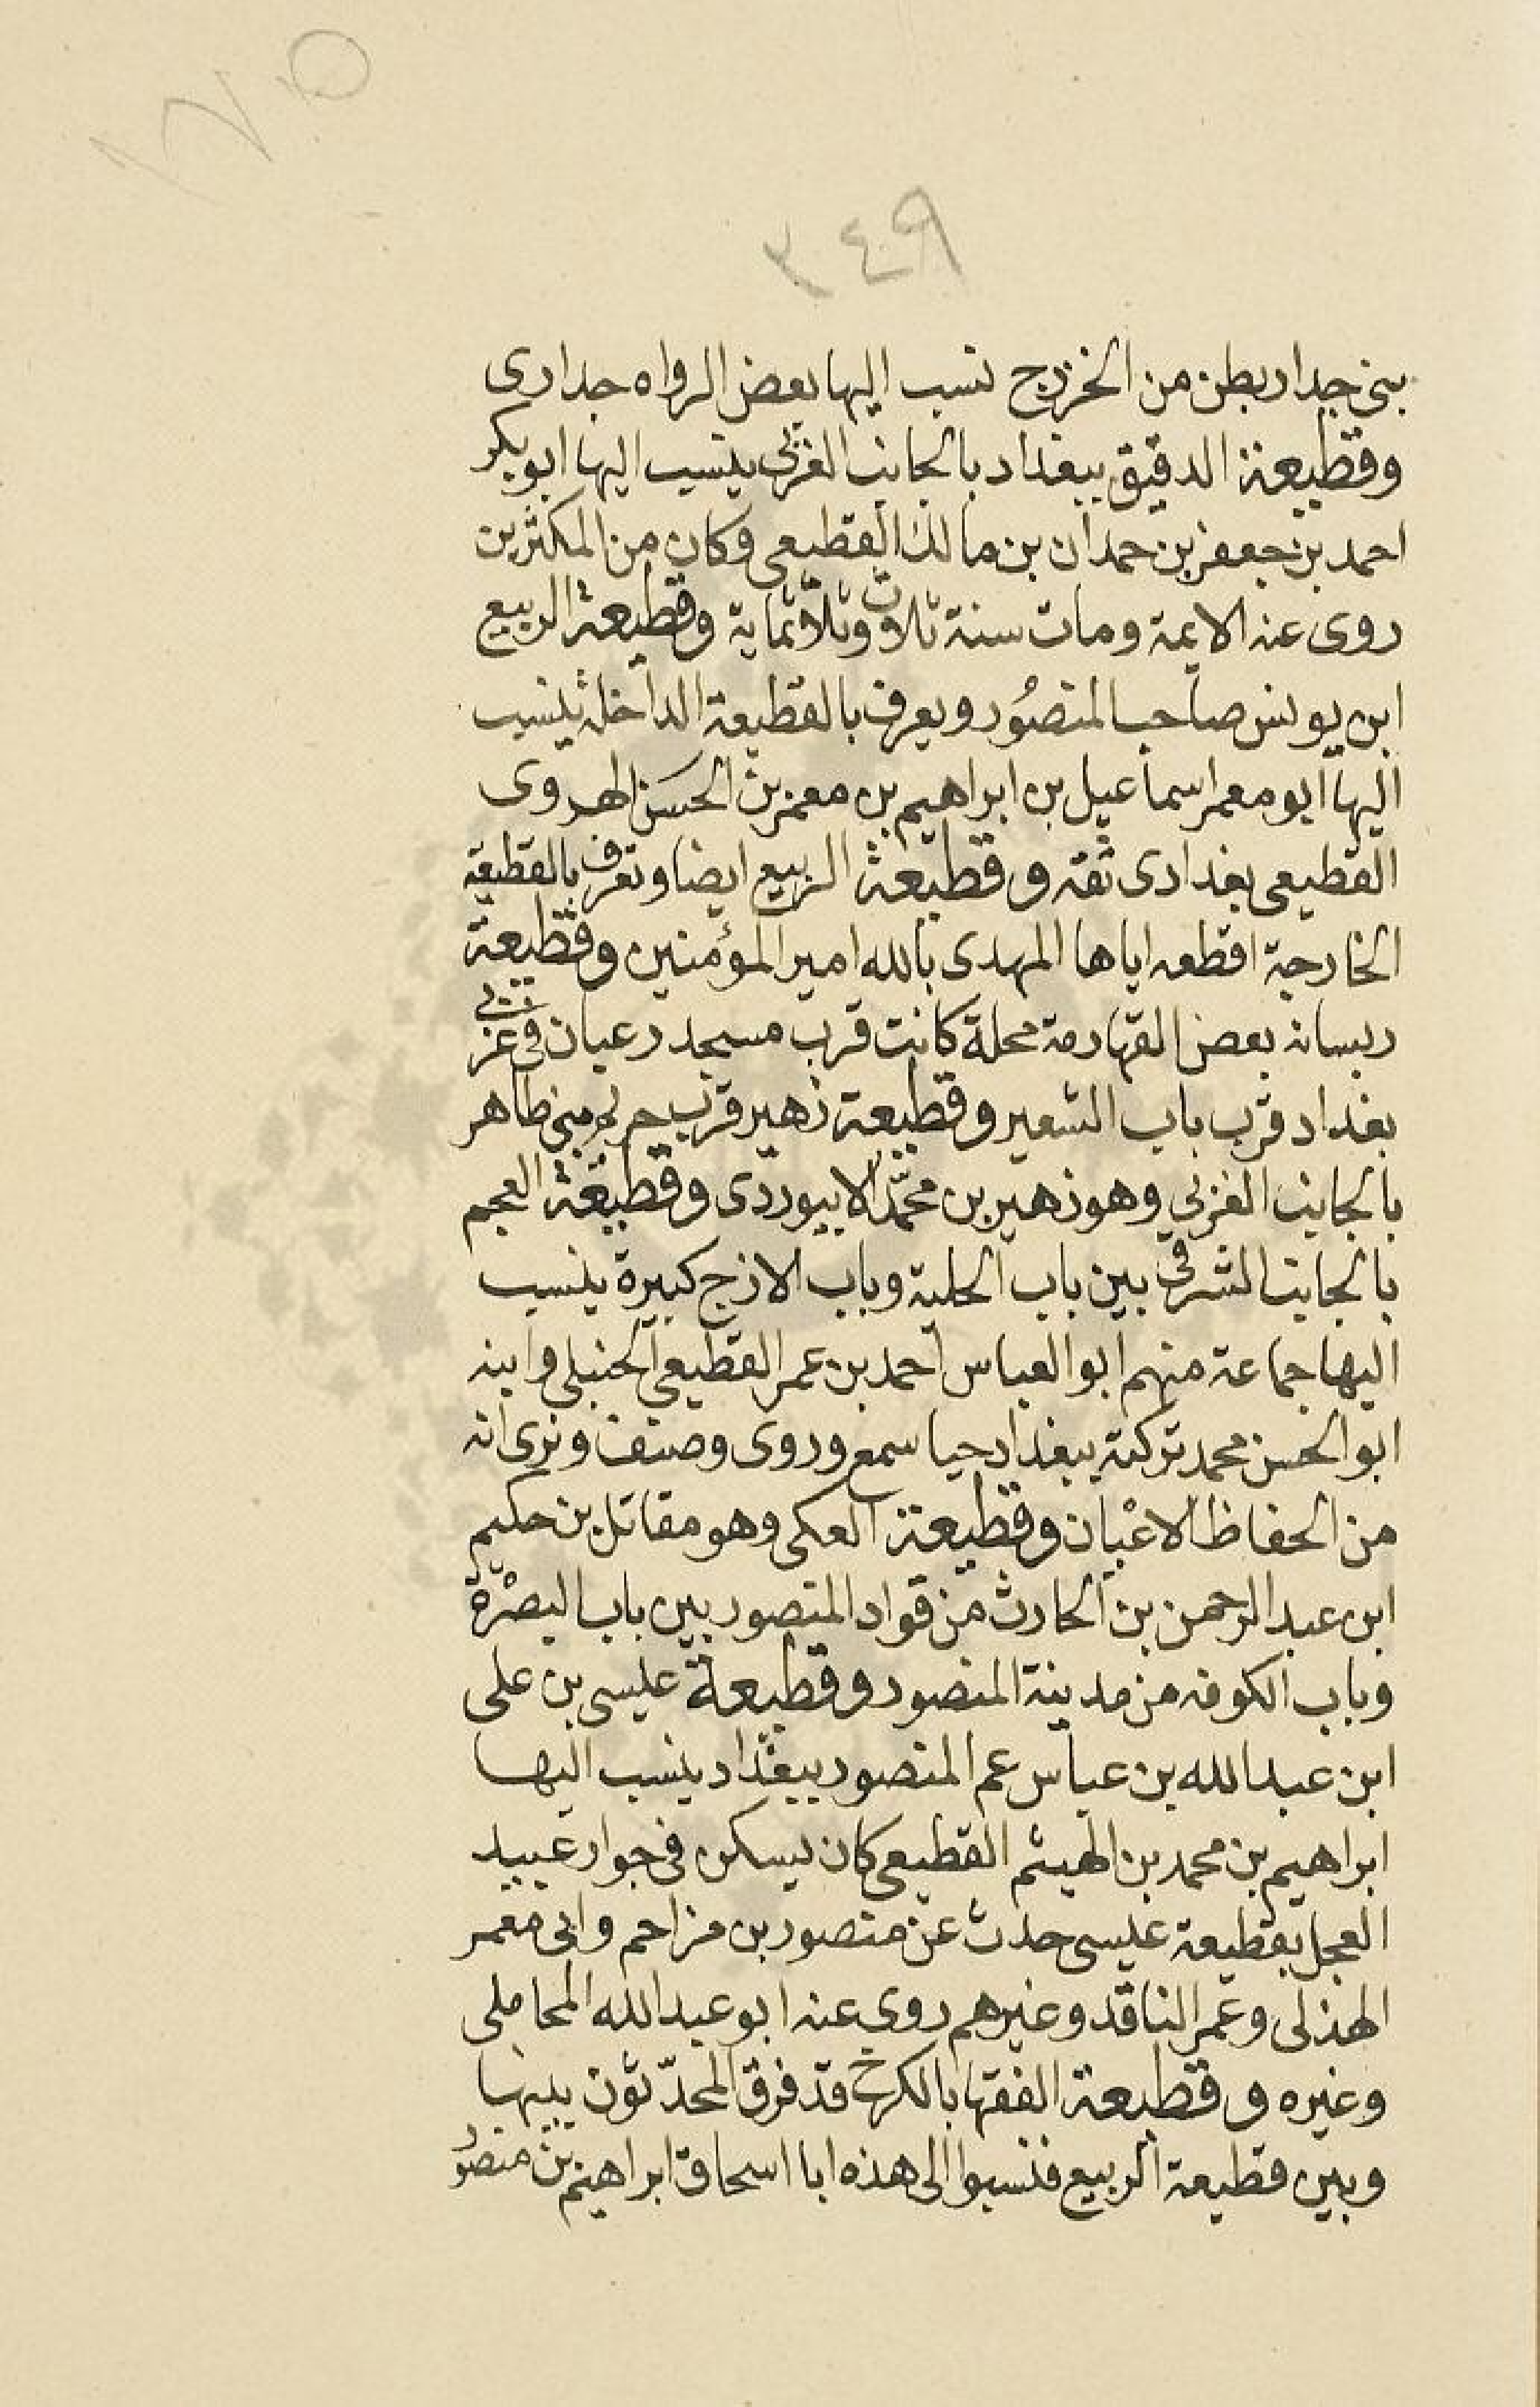 ١٧٥
٣٤٩
بنى جدار بطن من الخزرج نسب اليها بعض الرواه جدارى
وقطيعة الدقيق ببغداد بالجانب الغربى ينسب اليها ابو بكر
احمد بن جعفر بن حمدان بن مالك القطيعى وكان من المكثرين
روى عنه الايمة ومات سنة ثلاث وثلاثماية وقطيعة الربيع
ابن يونس صاحب المنصُور ويعرف بالقطيعة الداخلة ينسب
اليها ابو معمر اسماعيل بن ابراهيم بن معمر بن الحسن الهروى
القطيعى بغدادى ثقه وقطيعة الربيع ايضا وتعرف بالقطيعة
الخارجة اقطعه اياها المهدى بالله امير المؤمنين وقطيعة
ريسانه بعض القهارمة محلة كانت قرب مسجد رعبان فى غربى
بغداد قرب باب الشعير وقطيعة زهير قرب حريم بنى طاهر
بالجانب الغربي وهو زهير بن محمّد الابيوردى وقطيعة العجم
بالجانب الشرقى بين باب الحلبة وباب الازج كبيرة ينسب
اليها جماعة منهم ابو العباس احمد بن عمر القطيعي الحنبلى وابنه
ابو الحسن محمد تركته ببغداد حيا سمع وروى وصنف ونرى انه
من الحفاظ الاعْيان وقطيعة العكى وهو مقاتل بن حكيم
ابن عبد الرحمن بن الحارث من قواد المنصور بين باب البصْرة
وباب الكوفه من مدينة المنصور وقطيعة عيسى بن على
ابن عبد الله بن عباس عم المنصور ببغداد ينسب اليها
ابراهيم بن محمد بن الهيثم القطيعى كان يسكن فى جوار عبيد
العجل بقطيعة عيسى حدث عن منصور بن مزاحم وابى معمر
الهذلى وعمر الناقد وغيرهم روى عنه ابو عبد الله المحاملى
وغيره وقطيعة الفقها بالكرخ قد فرق المحدّثون بينها
وبين قطيعة الربيع فنسبوا الى هذه ابا اسحاق ابراهيم بن منصُور